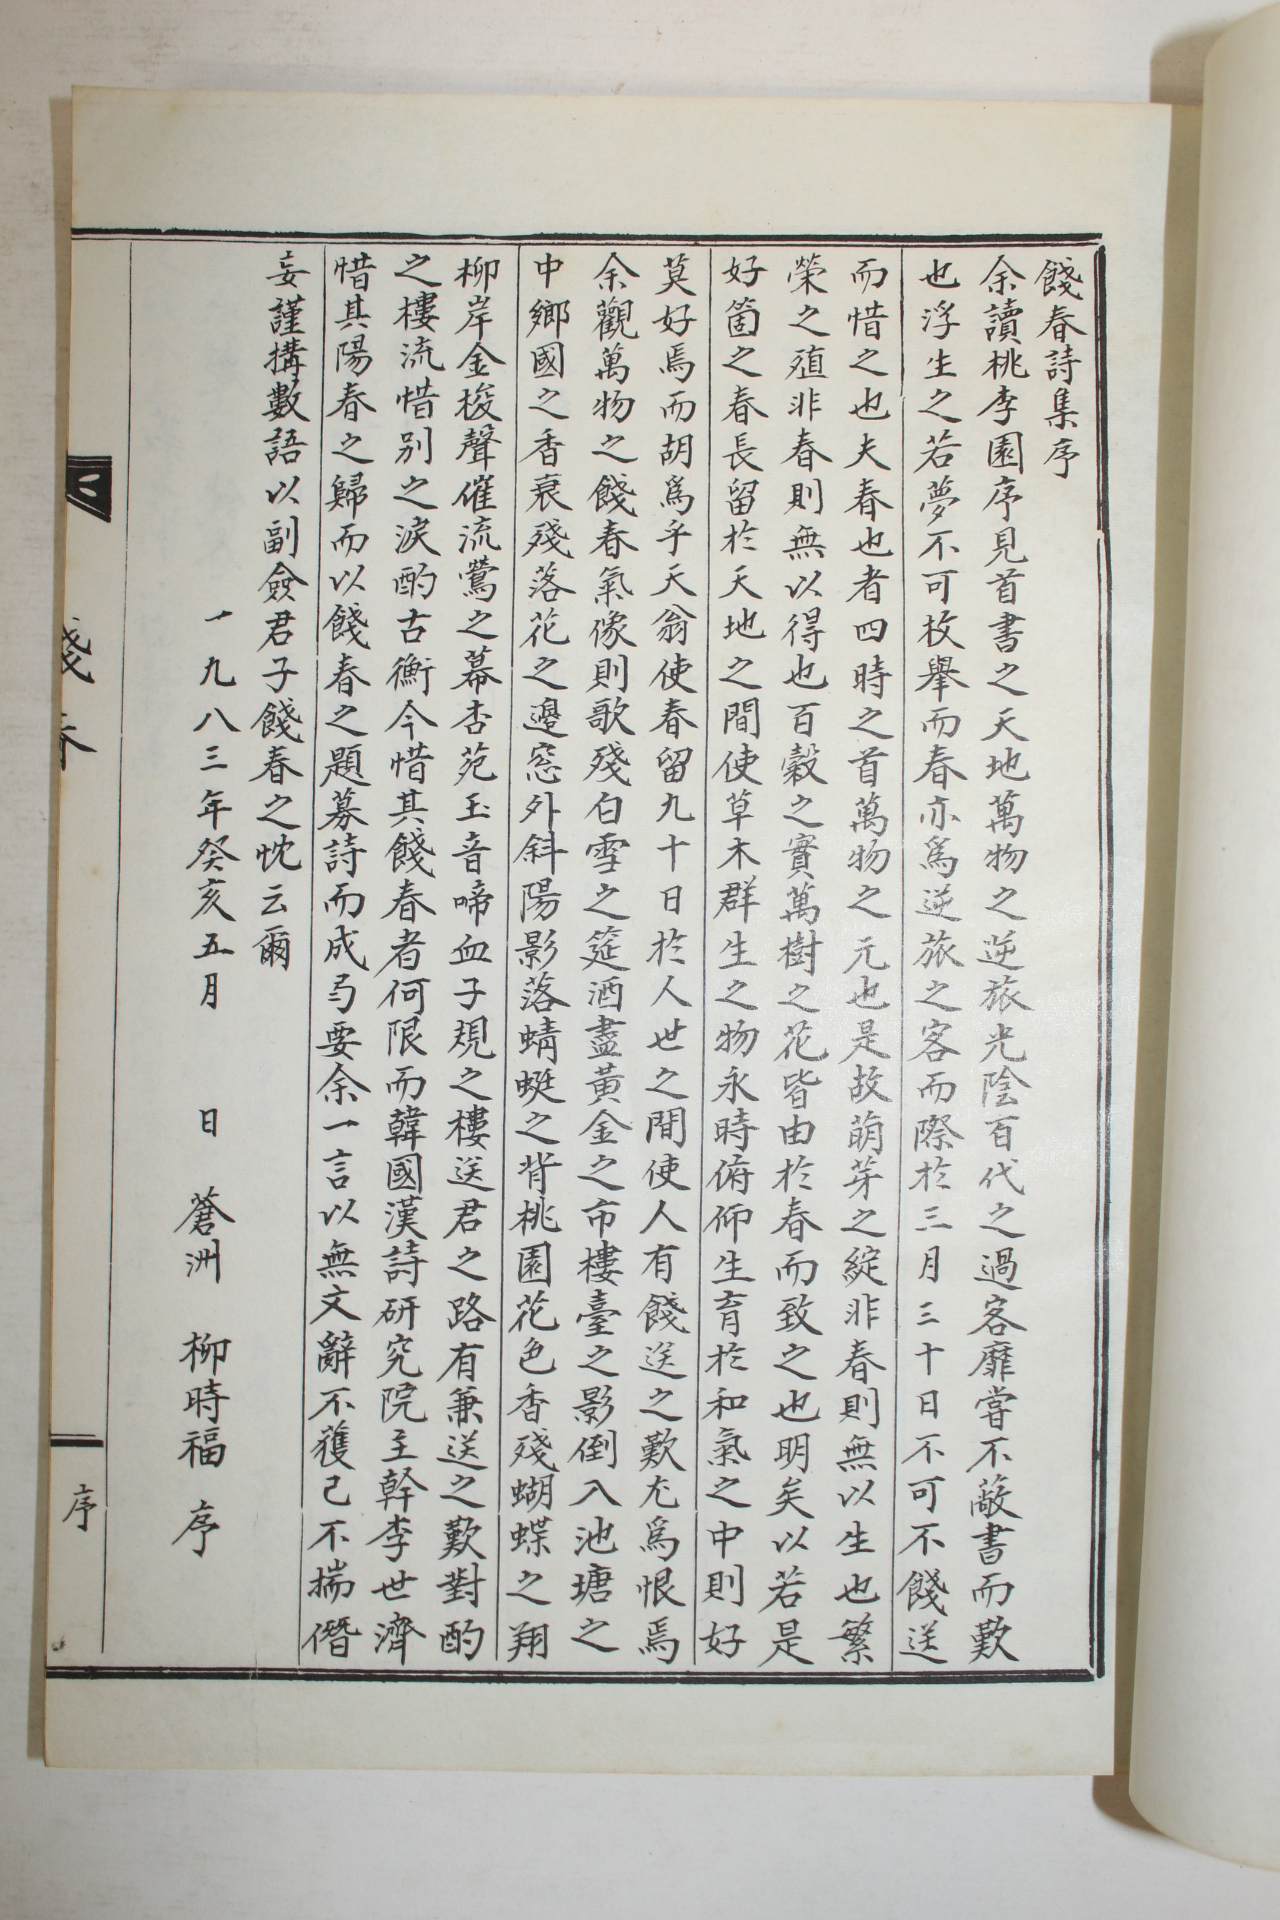 餞春詩集序
余讀桃李園序見首書之天地萬物之逆旅光陰百代之過客靡嘗不蔽書而歎
也浮生之若夢不可枚擧而春亦爲逆旅之客而際於三月三十日不可不餞送
而惜之也夫春也者四時之首萬物之元也是故萌芽之綻非春則無以生也繁
榮之殖非春則無以得也百穀之實萬樹之花皆由於春而致之也明矣以若是
好箇之春長留於天地之間使草木群生之物永時俯仰生育於和氣之中則好
莫好焉而胡爲乎天翁使春留九十日於人世之間使人有餞送之歎尤爲恨焉
余觀萬物之餞春氣像則歌殘白雪之筵酒盡黃金之市樓臺之影倒入池塘之
中鄉國之香衰殘落花之邊窓外斜陽影落蜻蜓之背桃園花色香殘蝴蝶之翔
柳岸金梭聲催流鶯之幕杏苑玉音啼血子規之樓送君之路有兼送之歎對酌
之樓流惜別之淚酌古衡今惜其餞春者何限而韓國漢詩研究院主幹李世濟
惜其陽春之歸而以餞春之題募詩而成弓要余一言以無文辭不獲己不揣僭
妄謹搆數語以副僉君子餞春之忱云爾
一九八三年癸亥五月 日 蒼洲 柳時福 序
序